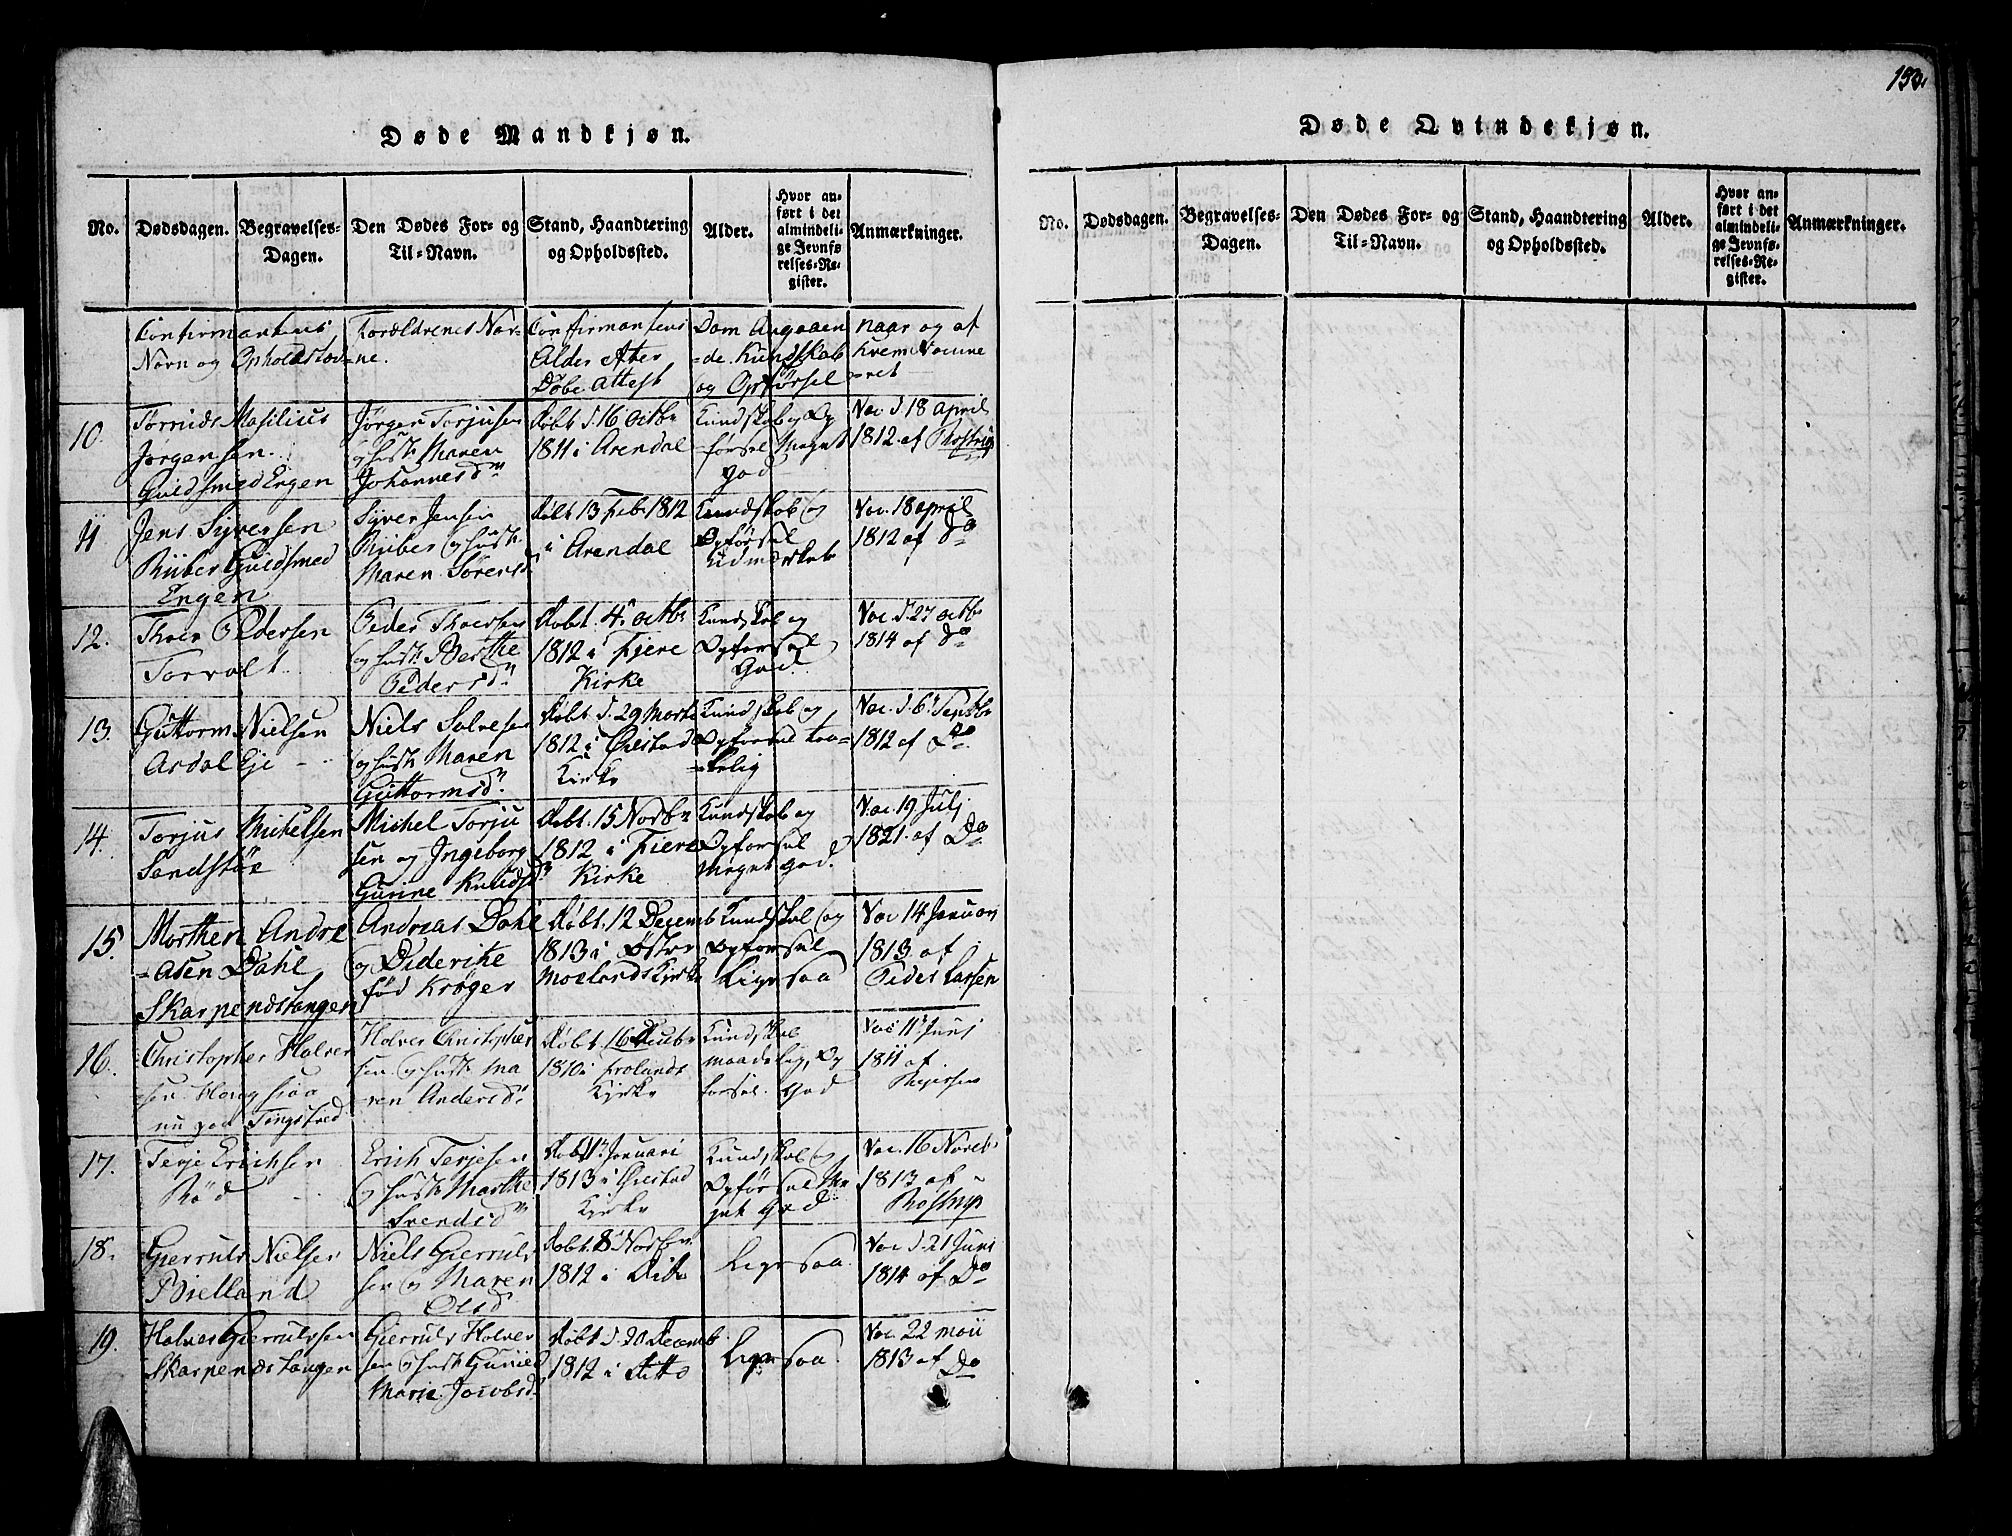 150.
Døde Mandkjøn.
No.
Dødsdagen.
Begravelses-
Dagen.
Den Dødes For- og
Til-Navn.
Stand, Haandtering
og Opholdssted.
Alder.
Hvor an-
ført i det
almindeli-
ge Jevnfø-
relses-Re-
gister.
Anmærkninger.
Confirmantens
Navn og Opholdstæd
Forældrenes Nav-
ne.
Confirmantens
Alder efter
Døbe Attest
Dom Angaaen
-de Kundskab
og Opførsel
naar og af
hvem Vaccine
-ret
10.
Jørgensen.
Guldsmed Engen
Jørgen Torjusen
og hust. Maren
Johannesdn
døbt d. 16 octbr
1811 i Arendal
Kundskab og Op
-førsel Meget
god
Vac d. 18 april
1812. af Rostrup
11
Jens Syversen
Riiber Guldsmed
Engen
Syver Jensen
Riiber og hust.
Maren Sørensd
døbt 13 Feb. 1812
i Arendal
Kundskab og
Opførsel
Udmærket
Vac. 18 april
1812 af Do
12.
Thor Pedersen
Torvolt
Peder Thorsen
og hust. Berthe
Pedersdn
døbt. 4. octbr
1812 i Fjere
Kirke
Kundskab og
Opførsel
God.
Vac d. 27 octbr
1814 af Do
13.
Guttorm Nielsen
Ardal Eje
Niels Salvesen
og hust. Maren
Guttormsdn
døbt d. 29 Marts
1812 i Øiestad
Kirke
Kundskab og
Opførsel
Vac. d. 6 Septbr
1812 af Do
14.
Torjus Michelsen
Sandstøe
Michel Torju
sen og Ingeborg
Gurine Knudsdn
døbt. 15 Novbr
1812 i Fjere
Kirke
Kundskab og
Opførsel
Meget god.
Vac. 19 Julj
1821. af Do
15.
Morthen Andre
-asen Dahl,
Skarpenæstangen
Andreas Dahl
og Diderike
fød Krøger
døbt. 12 Decemb
1813 i Østre
Moelands Kirke
Kundskab og
Opførsel
Ligesaa
Vac 14 Januari
1813 af
Peder Larsen
16.
Christopher Halvor
sen
Halvor Christopher
sen og hust. Ma
ren Andersdn
døbt. 16 Decbr
1810 i Frolands
Kirke
Kundskab
maadelig, Op
førsel. God
Vac 11 Junj
1811 af
17.
Terje Erichsen
Rød
Erich Terjesen
og hust. Marthe
Svendsdn
døbt 1 Januari
1813 i Øiestad
Kirke
Kundskab og
Opførsel Me
get God
Vac. 16 Novbr
1813 af
Rostrup
18.
Gierruls Nielsen
Bielland
Niels Gierruls
sen og Maren
Olsd
døbt 8 Novbr
1812 i dito
Ligesaa.
Vac d. 21 Juni
1814 af Do
19.
Halvor Gierrulssen
Skarpenæstangen
Gierruls Halvor
sen og hust. Guniild
Marie Jacobsdn
døbt d. 20 Decemb
1812 i ditto
Ligesaa.
Vac 22 maii
1813 af Do
Døde Qvindekjøn.
No.
Dødsdagen.
Begravelses-
Dagen.
Den Dødes For- og
Til-Navn.
Stand, Haandtering
og Opholdssted.
Alder.
Hvor an-
ført i det
almindeli-
ge Jevnfø-
relses-Re-
gister.
Anmærkninger.